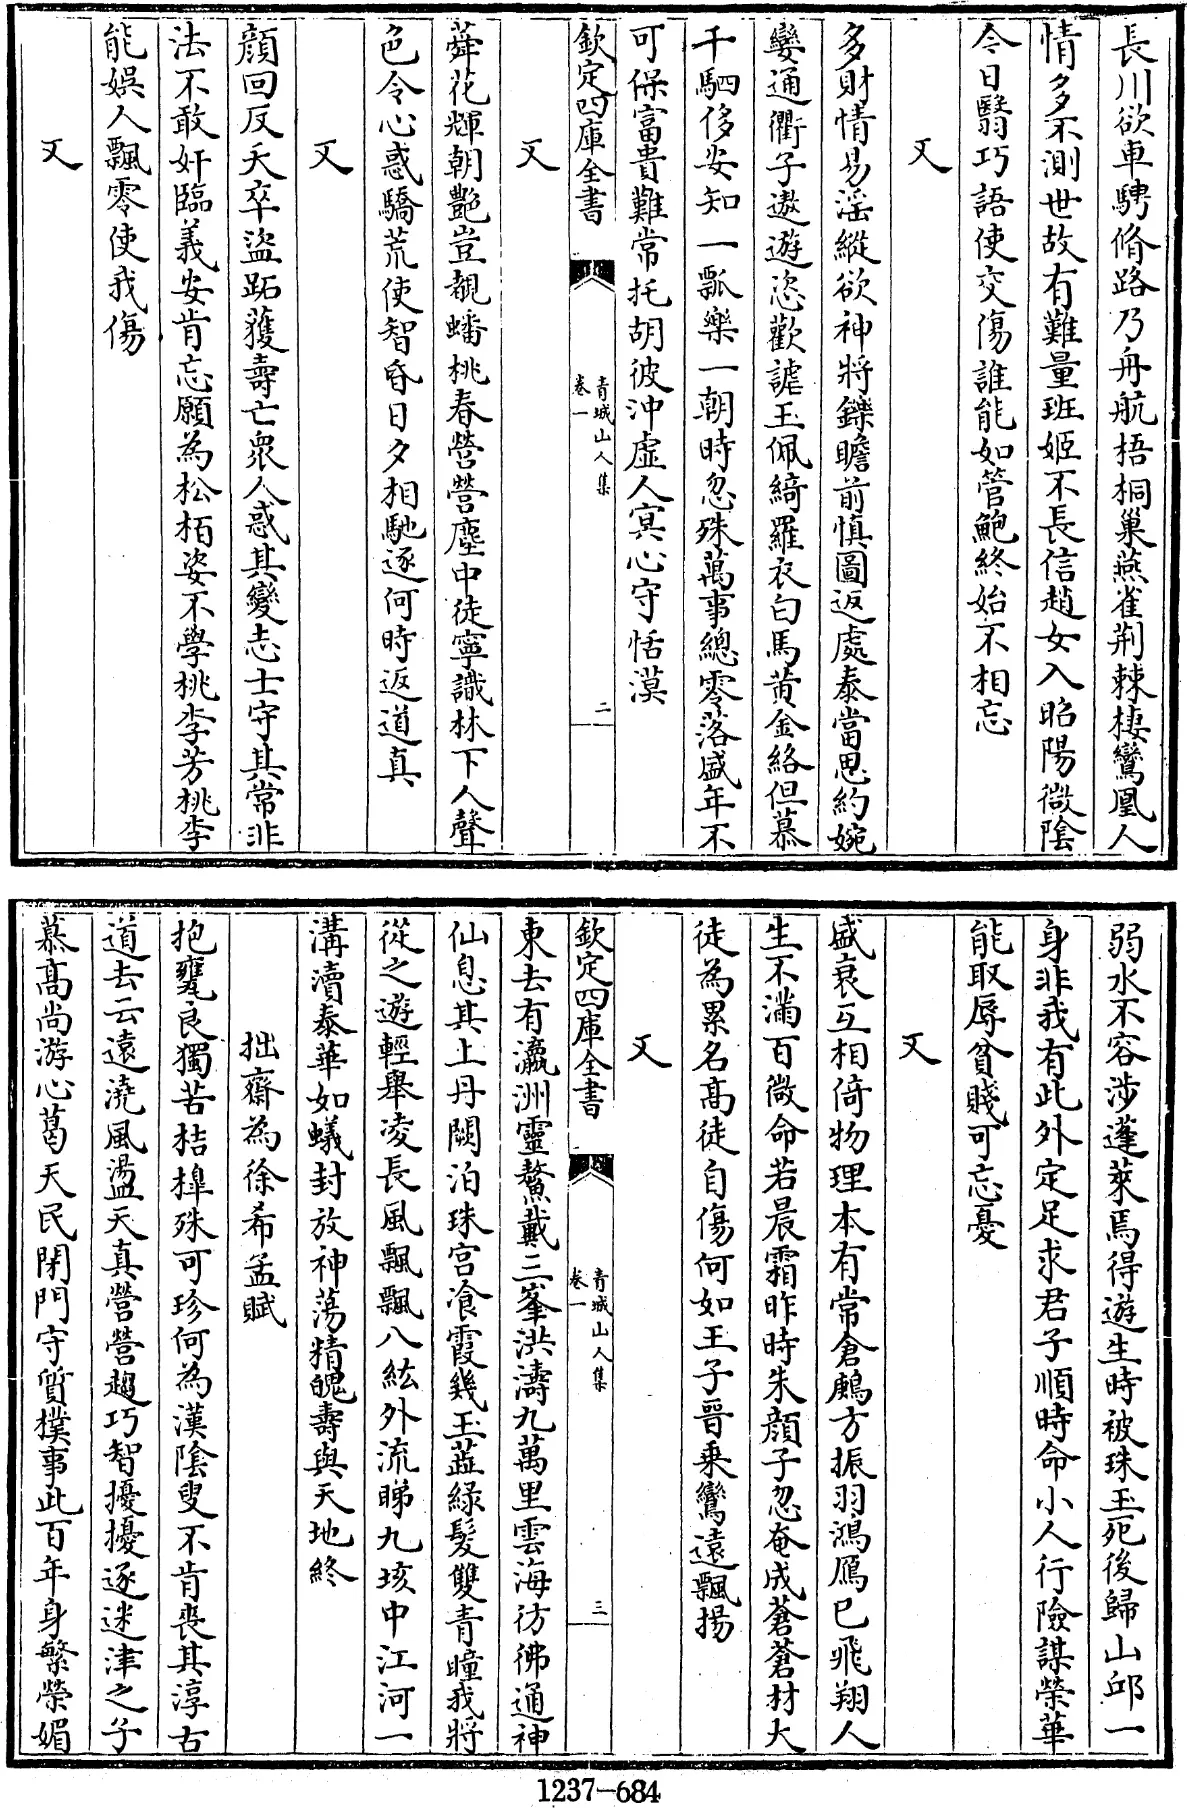 長川欲車騁脩路乃舟航梧桐巢燕雀荆棘棲鸞凰人
情多不測世故有難量班姬不長信趙女入昭陽微陰
今日翳巧語使交傷誰能如管鮑終始不相忘
又
多財情易淫縱欲神將鑠瞻前慎圖返處泰當思約婉
孌通衢子遨遊恣歡謔玉佩綺羅衣白馬黄金絡但慕
千駟侈安知一瓢樂一朝時忽殊萬事總零落盛年不
可保富貴難常托胡彼沖虚人冥心守恬漠
欽定四庫全書
青城山人集
卷一
二
又
蕣花輝朝艷豈覩蟠桃春營營塵中徒寧識林下人聲
色令心惑驕荒使智昏日夕相馳逐何時返道真
又
顔回反夭卒盜跖獲壽亡衆人惑其變志士守其常非
法不敢奸臨義安肯忘願為松栢姿不學桃李芳桃李
能娯人飄零使我傷
又
弱水不容涉蓬萊焉得遊生時被珠玉死後歸山邱一
身非我有此外定足求君子順時命小人行險謀榮華
能取辱貧賤可忘憂
又
盛衰互相倚物理本有常倉鷞方振羽鴻鴈已飛翔人
生不滿百微命若晨霜昨時朱顔子忽奄成蒼蒼材大
徒為累名髙徒自傷何如王子晉乗鸞遠飄揚
又
欽定四庫全書
青城山人集
卷一
三
東去有瀛洲靈鰲戴三峯洪濤九萬里雲海彷彿通神
仙息其上丹闕泊珠宫飡霞幾玉蕋緑髮雙青瞳我將
從之遊輕舉凌長風飄飄八紘外流睇九垓中江河一
溝瀆泰華如蟻封放神蕩精魄壽與天地終
拙齋為徐希孟賦
抱甕良獨苦桔槹殊可珍何為漢陰叟不肯喪其淳古
道去云遠澆風盪天真營營趨巧智擾擾逐迷津之子
慕髙尚游心葛天民閉門守質樸事此百年身繁榮媚
1237-684